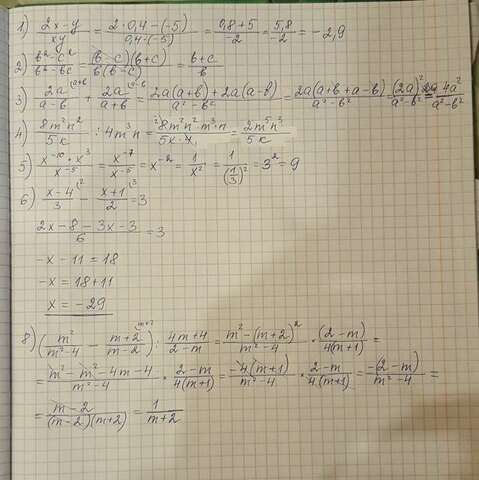 1) (2x-y)/(xy) = (2·0,4-(-5))/(0,4·(-5)) = (0,8+5)/(-2) = 5,8/(-2) = -2,9
2) (b²-c²)/(b²-bc) = ((b-c)(b+c))/(b(b-c)) = (b+c)/b
3) 2a/(a-b) + 2a/(a+b) = (2a(a+b)+2a(a-b))/(a²-b²) = (2a(a+b+a-b))/(a²-b²) = (2a)²/(a²-b²) = 4a²/(a²-b²)
4) 8m²n²/5k : 4m³n =
5) (x⁻¹⁰·x³)/x⁻⁵ = x⁻⁷/x⁻⁵ = x⁻² = 1/x² = 1/(1/3)² = 3² = 9
6) (x-4)/3 - (x+1)/2 = 3
(2x-8-3x-3)/6 = 3
-x-11 = 18
-x = 18+11
x = -29
8) (m²/(m²-4) - (m+2)/(m-2)) : (4m+4)/(2-m) = (m²-(m+2)²)/(m²-4) · (2-m)/(4(m+1)) =
= (m²-m²-4m-4)/(m²-4) · (2-m)/(4(m+1)) = (-4(m+1))/(m²-4) · (2-m)/(4(m+1)) = (-(2-m))/(m²-4) =
= (m-2)/((m-2)(m+2)) = 1/(m+2)